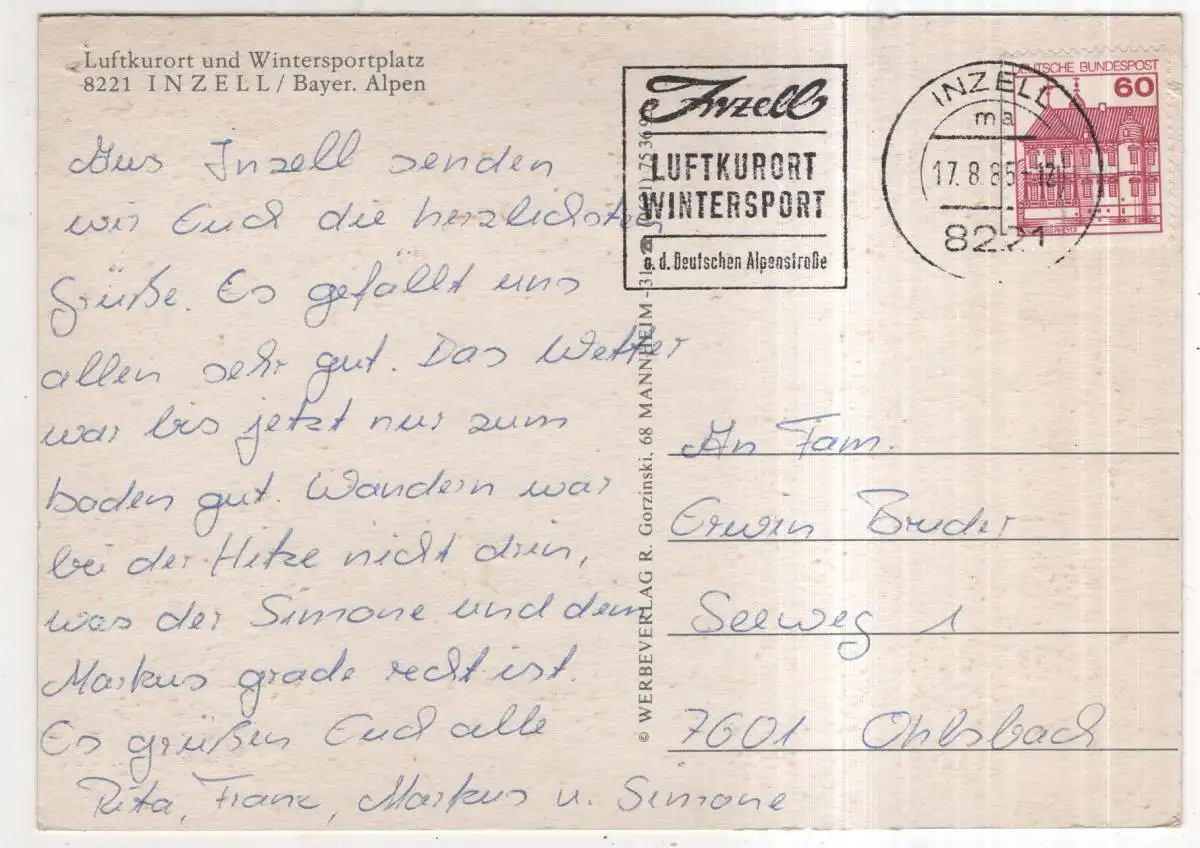 Luftkurort und Wintersportplatz
8221 INZELL / Bayer. Alpen
Aus Inzell senden
wir Euch die herzlichsten
Grüße. Es gefällt uns
allen sehr gut. Das Wetter
war bis jetzt nur zum
baden gut. Wandern war
bei der Hitze nicht drin,
was der Simone und dem
Markus grade recht ist.
Es grüßen Euch alle
Rita, Franz, Markus u. Simone
© WERBEVERLAG R. Gorzinski, 68 MANNHEIM - 31
Inzell
LUFTKURORT
WINTERSPORT
a. d. Deutschen Alpenstraße
INZELL
ma
17. 8. 85
8221
DEUTSCHE BUNDESPOST
60
An Fam.
Erwin Bruder
Seeweg 1
7601 Ohlsbach